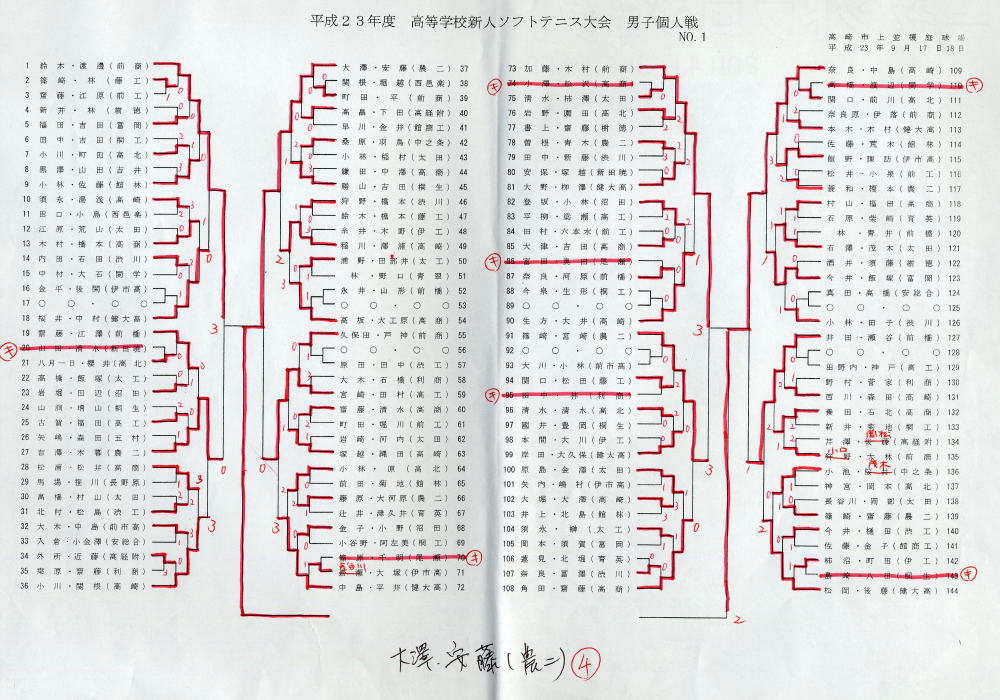 平成２３年度　高等学校新人ソフトテニス大会　男子個人戦
NO.1
高崎市上並榎庭球場
平成 23 年 9 月 17 日 18 日
1 鈴木・渡邊(前商)
2 篠崎・林(藤工)
3 齋藤・江原(前工)
4 新井・林(樹徳)
5 福田・吉田(富岡)
6 田中・吉田(桐工)
7 小川・町田(高北)
8 黒澤・山田(吉井)
9 小林・佐藤(館林)
10 須永・湯浅(高崎)
11 田口・小島(西邑楽)
12 江原・荒山(太田)
13 木村・橋本(高商)
14 内田・石田(渋川)
15 中村・大石(関学)
16 金平・後閑(伊市高)
17 ○○・○○
18 桜井・中村(健大高)
19 齋藤・江澤(前橋)
20 山田・清水(新田暁)
21 八月一日・櫻井(高北)
22 高橋・飯塚(太工)
23 岩堀・田辺(沼田)
24 山洞・増山(桐生)
25 古賀・福田(高工)
26 矢嶋・森田(玉村)
27 吉澤・木暮(農二)
28 松浦・松井(高商)
29 馬場・笹川(長野原)
30 高橋・村山(太田)
31 北村・松島(渋工)
32 大木・中島(前市高)
33 入倉・小金澤(安総合)
34 外所・近藤(高経附)
35 栗原・齋藤(利商)
36 小川・関根(高崎)
大澤・安藤(農二) 37
関根・堀越(西邑楽) 38
町田・平(前商) 39
高畠・下田(高経附) 40
早川・金井(館商工) 41
桑原・羽鳥(中之条) 42
小林・稲村(太田) 43
鎌田・中澤(高商) 44
勝山・吉田(桐生) 45
狩野・橋本(渋川) 46
鈴木・橋本(藤工) 47
糸井・木野(伊工) 48
稲川・澤浦(高崎) 49
浦野・田部井(太工) 50
林・野口(青翠) 51
永井・山形(前橋) 52
○○・○○ 53
高坂・大工原(高商) 54
久保田・戸神(前商) 55
○○・○○ 56
原田・田中(渋工) 57
大木・石橋(利商) 58
宮崎・田村(高工) 59
齋藤・清水(高商) 60
町田・堀川(前工) 61
岩崎・河内(太田) 62
塚越・縄田(高崎) 63
小林・原(高北) 64
前田・菊地(館林) 65
藤原・大河原(農二) 66
辻井・津久井(育英) 67
金子・小野(沼田) 68
小谷野・阿左美(桐工) 69
篠原・千明(尾瀬) 70
岩瀬・大塚(伊市高) 71
中島・平井(健大高) 72
73 加藤・木村(前商)
74 小澤・松沢(高商)
75 清水・柿澤(太田)
76 岩野・園田(高北)
77 書上・齋藤(樹徳)
78 曽根・青木(農二)
79 田中・新藤(渋川)
80 安保・塚越(新田暁)
81 大野・柳澤(健大高)
82 登坂・小林(沼田)
83 平柳・梁瀬(高工)
84 田村・六本木(前工)
85 大津・吉田(高商)
86 富田・奥田(尾瀬)
87 奈良・河原(前橋)
88 今泉・生形(桐工)
89 ○○・○○
90 生方・大井(高崎)
91 篠崎・宮崎(農二)
92 ○○・○○
93 大川・小林(前市高)
94 関口・松田(藤工)
95 田中・林(利商)
96 清水・清水(高北)
97 國井・豊岡(桐生)
98 本間・大川(伊工)
99 岸田・大久保(健大高)
100 原島・金澤(太田)
101 矢内・嶋村(伊市高)
102 大堀・大澤(高崎)
103 井上・北島(館林)
104 須永・榊(太工)
105 岡本・須賀(富岡)
106 蓮見・北堀(育英)
107 奈良・富澤(渋川)
108 角田・齋藤(高商)
奈良・中島(高崎) 109
高橋・渡辺(関学) 110
関口・前川(高北) 111
奈良原・伊落(前商) 112
本木・木村(健大高) 113
佐藤・荒木(館林) 114
飯野・諏訪(伊市高) 115
松井・小泉(前工) 116
養和・榎本(農二) 117
村山・福田(高商) 118
石原・柴崎(育英) 119
林・青井(前橋) 120
石澤・茂木(太田) 121
酒井・須藤(樹徳) 122
今井・飯塚(富岡) 123
真田・高橋(安総合) 124
○○・○○ 125
小林・田子(渋川) 126
井田・瀬谷(前橋) 127
○○・○○ 128
田野内・神戸(高工) 129
野村・菅家(利商) 130
西川・森田(高崎) 131
養田・石北(高商) 132
新井・菊地(桐工) 133
芹澤・後藤(高経附) 134
狩野・大林(前商) 135
小池・桜井(中之条) 136
神宮・岡本(高北) 137
長谷川・岡部(太田) 138
篠崎・齋藤(農二) 139
今井・樋田(渋工) 140
佐藤・金子(館商工) 141
柿沼・町田(伊工) 142
島崎・八田(桐生) 143
松岡・後藤(健大高) 144
大澤・安藤(農二) ④